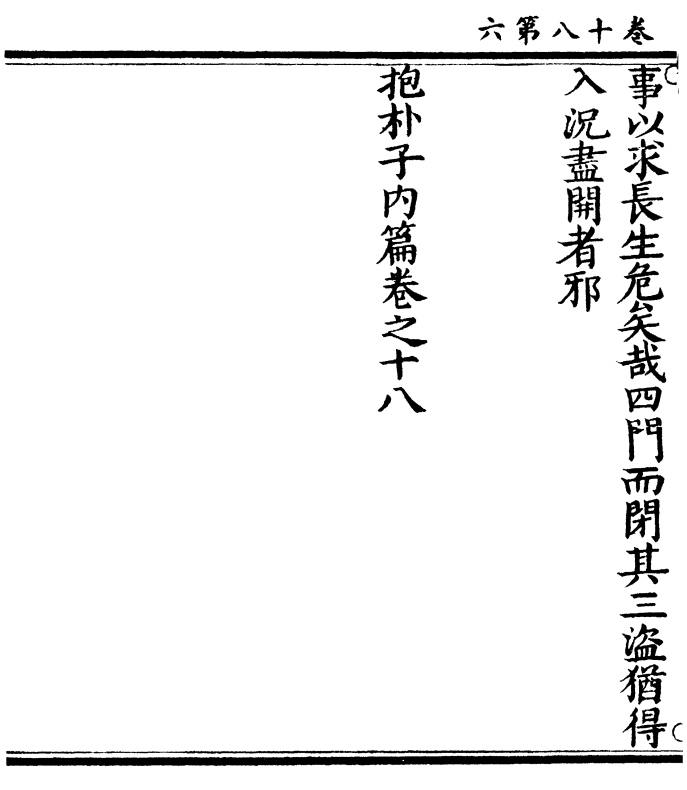 卷十八第六
事以求長生危矣哉四門而閉其三盜猶得
入況盡開者邪
抱朴子內篇卷之十八